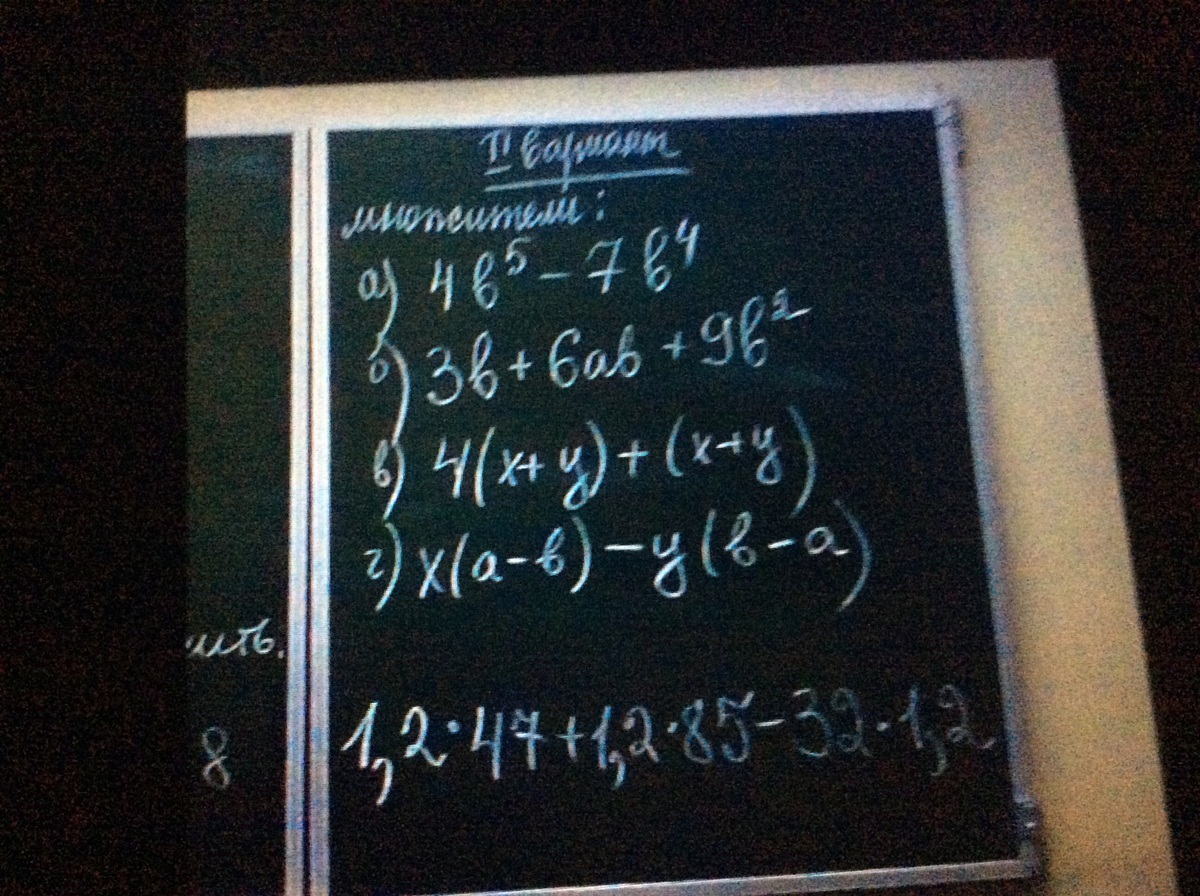 II вариант
множители:
а) 4в⁵ - 7в⁴
б) 3в + 6ав + 9в²
в) 4(х+у) + (х+у)
г) х(а-в) - у(в-а)
ить.
8
1,2·47+1,2·85-32·1,2